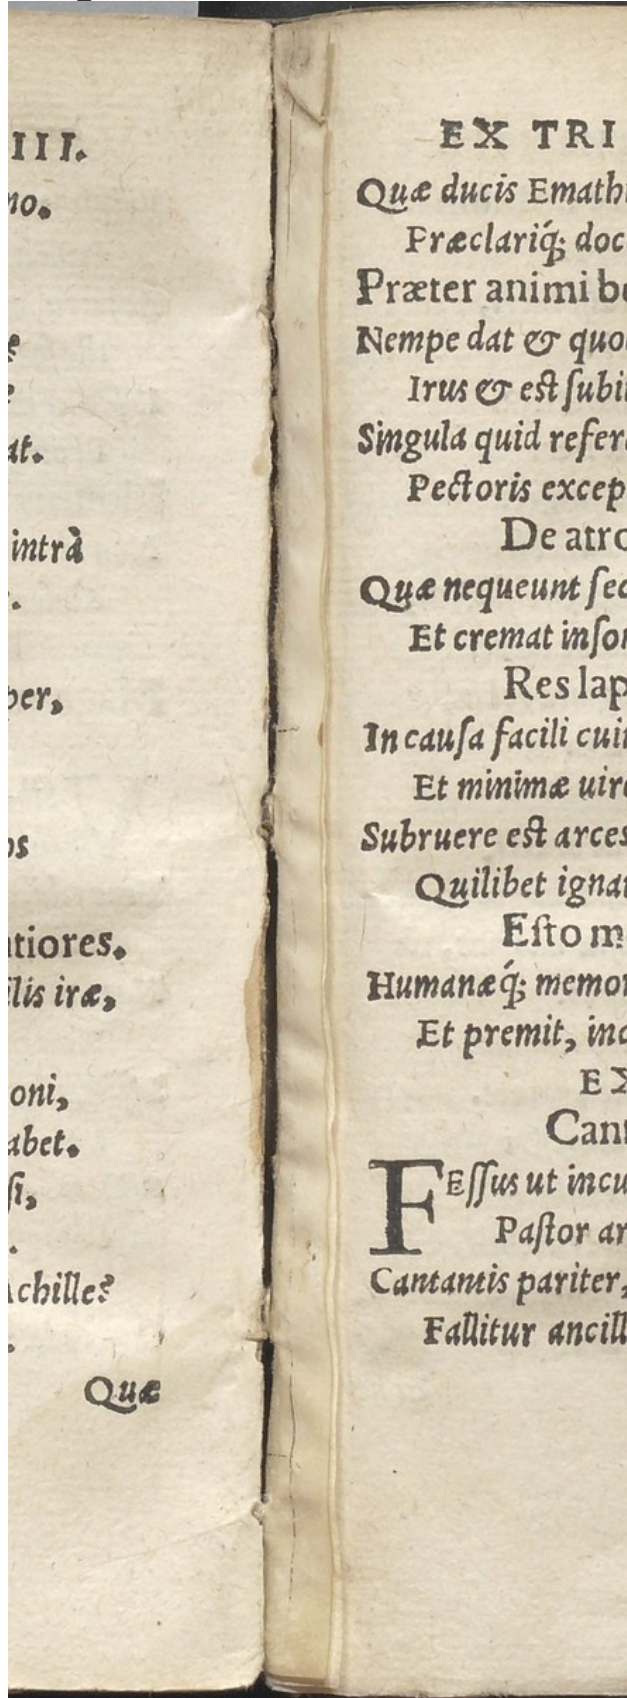 III.
no.
at.
intrà
per,
os
tiores.
lis iræ,
oni,
abet.
si,
Achille?
Quæ
EX TRI
Quæ ducis Emath
Præclariq́; doc
Præter animi bo
Nempe dat & quo
Irus & est ſubi
Singula quid refer
Pectoris excep
De atro
Quæ nequeunt ſec
Et cremat inſon
Res lap
In cauſa facili cui
Et minimæ uire
Subruere est arces
Quilibet igna
Eſto m
Humanæq́; memor
Et premit, inc
EX
Cant
FEſſus ut incu
Paſtor ar
Cantantis pariter,
Fallitur ancill